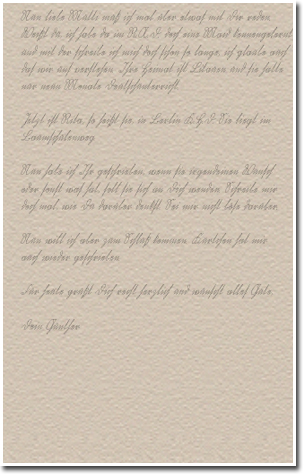 Nun liebe Mutti muß ich mal über etwas mit Dir reden.
Weißt du, ich habe da im R.A.D. doch eine Maid kennengelernt
und mit der schreibe ich mich doch schon so lange, ich glaube auch
daß wir auf verstehen. Ihre Heimat ist Litauen und sie hatte
nur neun Monate Deutschunterricht.
Jetzt ist Ruba, so heißt sie, in Berlin K.H.D. Sie liegt im
Baumschulenweg.
Nun habe ich Ihr geschrieben, wenn sie irgendeinen Wunsch
oder sonst was hat, soll sie sich an Dich wenden. Schreibe mir
doch mal, wie Du darüber denkst. Sei mir nicht böse darüber.
Nun will ich aber zum Schluß kommen. hat mir
auch wieder geschrieben.
Für heute grüßt Dich recht herzlich und wünscht alles Gute,
Dein Günther